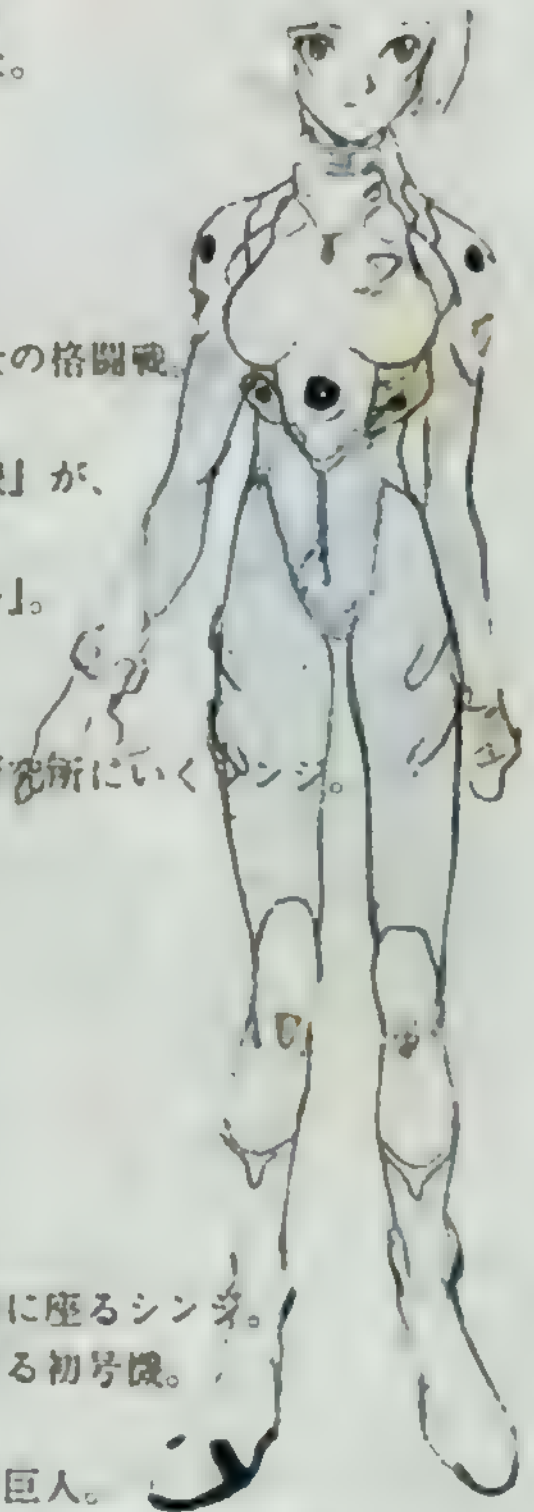 の格闘戦
』が、
』。
究所にいく シンジ。
に座るシンジ。
る初号機。
巨人。